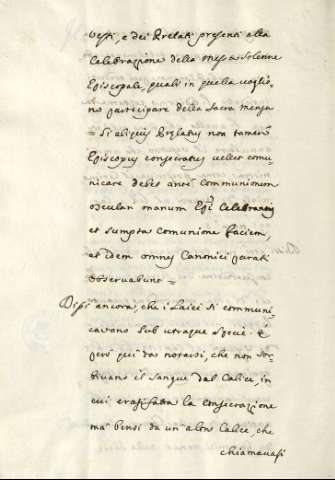 vesti, e dei Prelati presenti alla
Celebrazione della Messa Solenne
Episcopale, quali in quella voglio-
no partecipare della Sacra Mensa
= Si aliquis Prelatus non tamen
Episcopus consecratus vellet comu-
nicare debet ante Communionem
osculari manum Epi Celebrantis
et sumpta comunione faciem,
et idem omnes Canonici parati
observabunt =
Dissi ancora, che i Laici si communi-
cavano sub utraque specie. È
però qui da notarsi, che non sor-
bivano il sangue dal Calice, in
cui erasi fatta la consecrazione
ma bensì da un altro Calice, che
chiamavasi